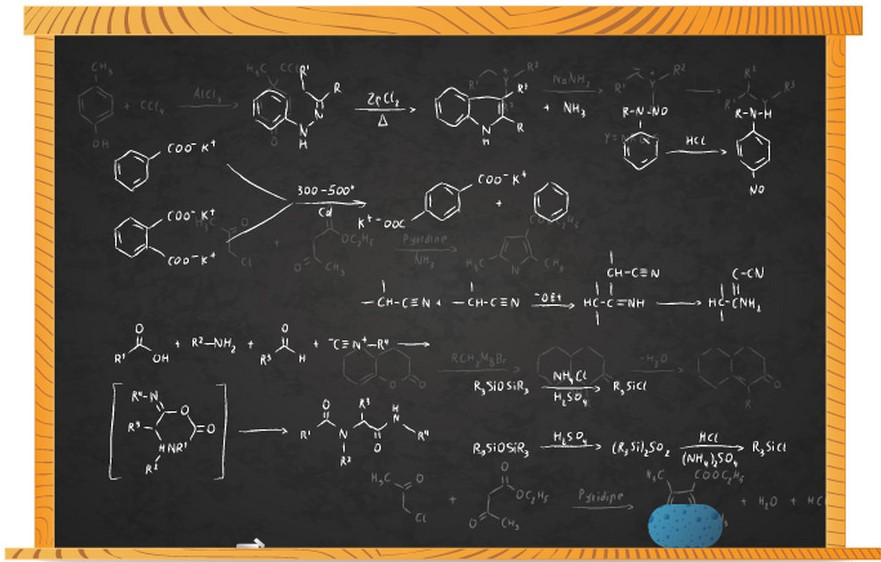 CH₃ + CCl₄ AlCl₃ OH
H₃C CCl R' R N N H ZnCl₂ Δ
R¹ R² R' R N H + NH₃
N=NH₂ R' R² R-N-NO
R² R³ R' R-N-H
HCl NO
COO⁻ K⁺
COO⁻ K⁺
COO⁻ K⁺
300-500°
Cd
COO⁻ K⁺
K⁺⁻OOC +
O Cl + OC₂H₅ O CH₃ Pyridine NH₃ H₃C N CH₃
-CH-C≡N + -CH-C≡N ⁻OEt CH-C≡N HC-C=NH C-CN HC-CNH₂
R¹ O OH + R²-NH₂ + R³ O H + ⁻C≡N⁺-R⁴
O O RCH₂MgBr -H₂O O R
R₃SiOSiR₃ NH₄Cl H₂SO₄ R₃SiCl
R⁴-N O R³ O HNR¹ R²
R¹ O N R² R³ O H N R⁴
R₃SiOSiR₃ H₂SO₄ (R₃Si)₂SO₂ HCl (NH₄)₂SO₄ R₃SiCl
H₃C O Cl + O OC₂H₅ O CH₃ Pyridine H₃C COOC₂H₅ + H₂O + HCl